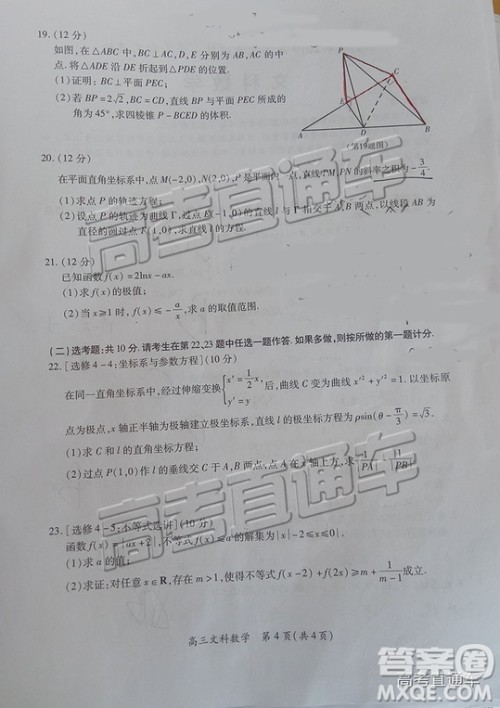 19. (12 分)
如图,在△ABC 中,BC⊥AC,D,E 分别为 AB,AC 的中
点.将△ADE 沿 DE 折起到△PDE 的位置.
(1)证明:BC⊥平面 PEC;
(2)若 BP=2√2,BC=CD,直线 BP 与平面 PEC 所成的
角为 45°,求四棱锥 P-BCED 的体积.
P
C
E
A
D
B
(第19题图)
20. (12 分)
在平面直角坐标系中,点 M(-2,0),N(2,0),P 是平面内一点,直线 PM,PN 的斜率之积为-3/4.
(1)求点 P 的轨迹方程;
(2)设点 P 的轨迹为曲线 Γ,过点 E(-1,0)的直线 l 与 Γ 相交于 A,B 两点,以线段 AB 为
直径的圆过点 F(1,0),求直线 l 的方程.
21. (12 分)
已知函数 f(x)=2lnx-ax.
(1)求 f(x)的极值;
(2)当 x≥1 时,f(x)≤-a/x,求 a 的取值范围.
(二)选考题:共 10 分. 请考生在第 22,23 题中任选一题作答. 如果多做,则按所做的第一题计分.
22. [选修 4-4:坐标系与参数方程](10 分)
在同一直角坐标系中,经过伸缩变换{x′=1/2x, y′=y 后,曲线 C 变为曲线 x′²+y′²=1. 以坐标原
点为极点,x 轴正半轴为极轴建立极坐标系,直线 l 的极坐标方程为 ρsin(θ-π/3)=√3.
(1)求 C 和 l 的直角坐标方程;
(2)过点 P(1,0)作 l 的垂线交 C 于 A,B 两点,点 A 在 x 轴上方,求1/|PA|-1/|PB|.
23. [选修 4-5:不等式选讲](10 分)
函数 f(x)=|ax+2|,不等式 f(x)≤a 的解集为{x|-2≤x≤0}.
(1)求 a 的值;
(2)求证:对任意 x∈R,存在 m>1,使得不等式 f(x-2)+f(2x)≥m+1/(m-1)成立.
高三文科数学 第 4 页(共 4 页)
高考直通车
高考直通车
答案卷
高考直通车
MXQE.COM